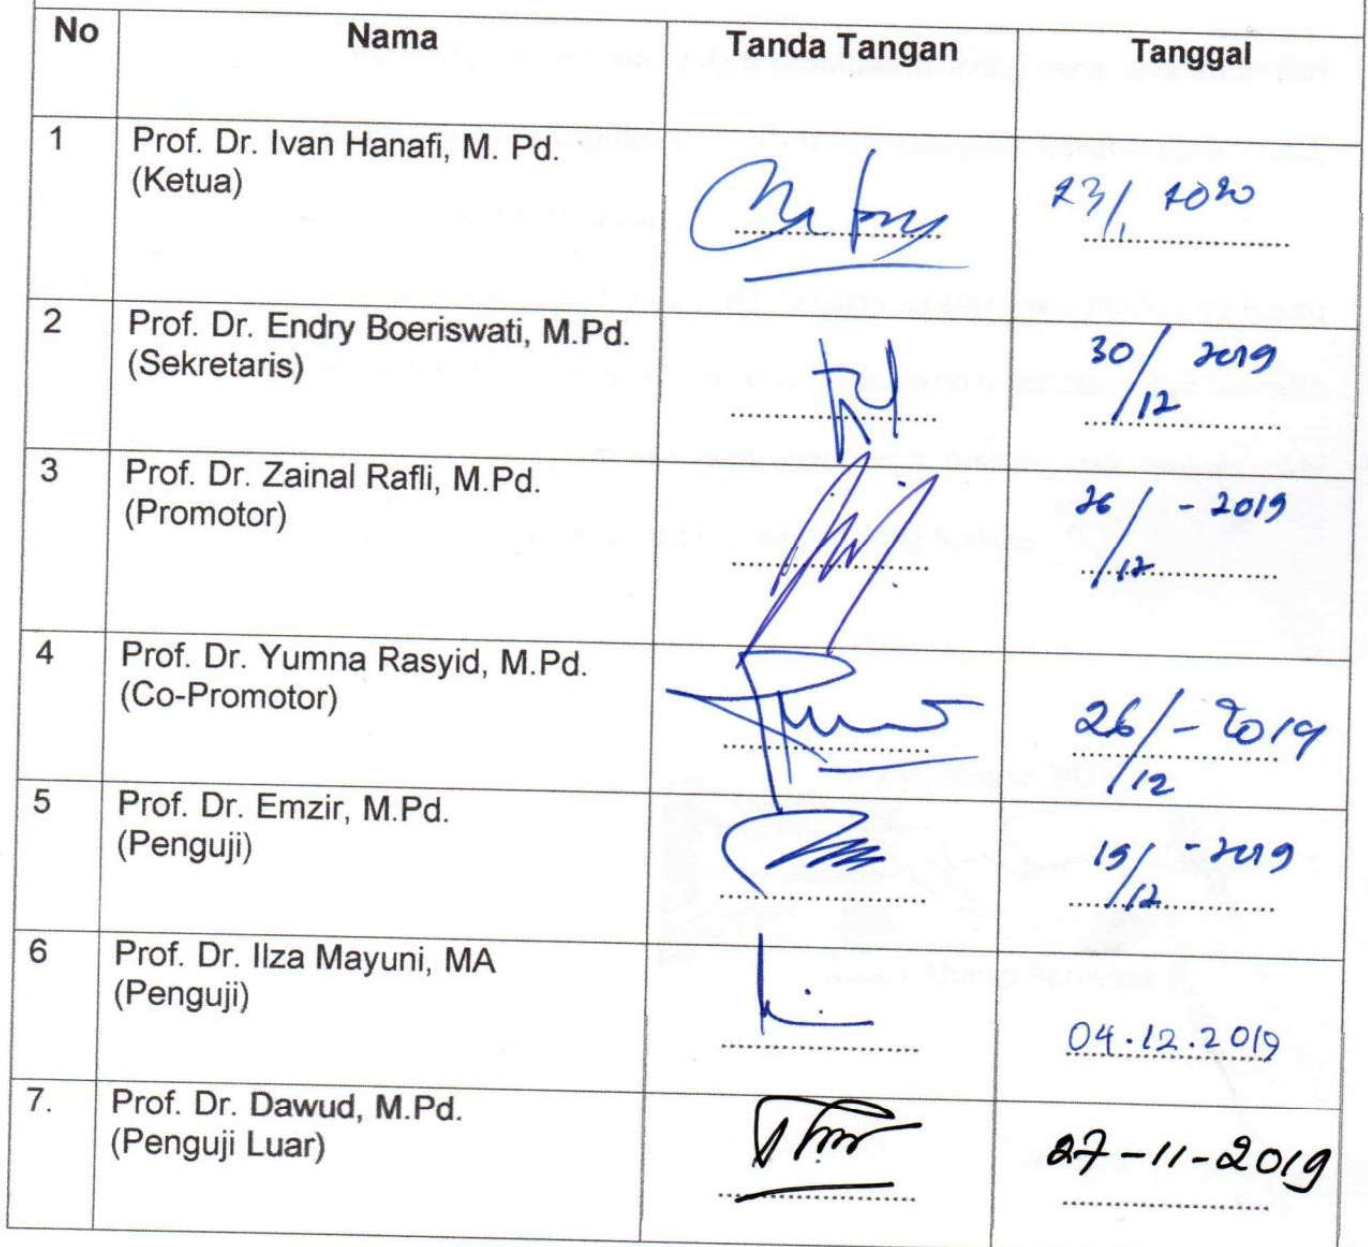 No Nama Tanda Tangan Tanggal
1 Prof. Dr. Ivan Hanafi, M. Pd.
(Ketua)
23/1 2020
2 Prof. Dr. Endry Boeriswati, M.Pd.
(Sekretaris)
30/12 2019
3 Prof. Dr. Zainal Rafli, M.Pd.
(Promotor)
26/12 - 2019
4 Prof. Dr. Yumna Rasyid, M.Pd.
(Co-Promotor)
26/12 - 2019
5 Prof. Dr. Emzir, M.Pd.
(Penguji)
19/12 - 2019
6 Prof. Dr. Ilza Mayuni, MA
(Penguji)
04.12.2019
7. Prof. Dr. Dawud, M.Pd.
(Penguji Luar)
27-11-2019